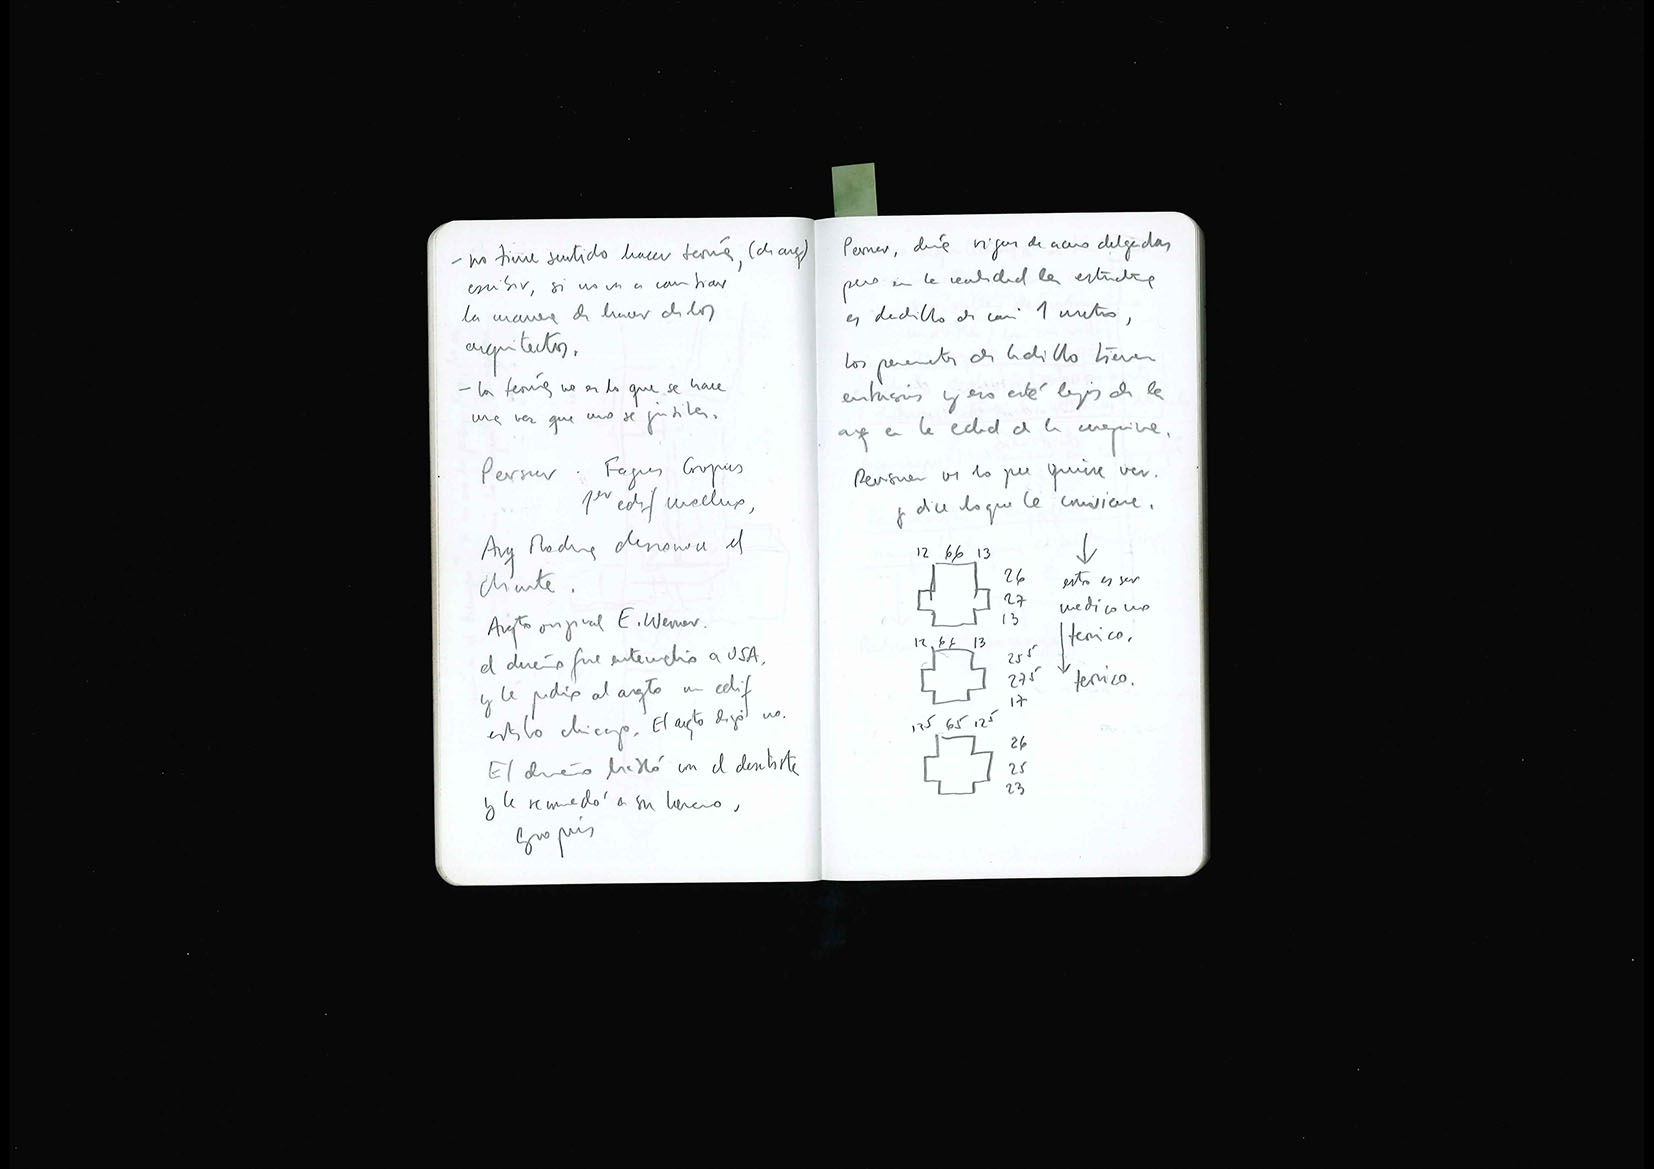 – no tiene sentido hacer teoría, (de arq)
escribir, si no va a cambiar
la manera de hacer de los
arquitectos.
– la teoría no es lo que se hace
una vez que uno se jubila.
Pevsner . Fagus Gropius
1er edif moderno,
Arq Moderna desconoce el
cliente.
Arqto original E. Werner.
el dueño fue a USA,
y le pidio al arqto un edif
estilo chicago. El arqto dijo no.
El dueño habló con el dentista
y le recomendó a su
Gropius
Pevsner, decía vigas de acero delgadas
pero en la realidad la estructura
es de ladrillo de casi 1 metro,
Los paramentos de ladrillo tienen
entasis y eso está lejos de la
arq en la edad de la maquina.
Pevsner ve lo que quiere ver.
y dice lo que le conviene.
↓
esto es ser
medico no
teorico.
teorico.
12 66 13
26
27
13
12, 66 13
25⁵
27⁵
17
12⁵ 65 12⁵
26
25
23